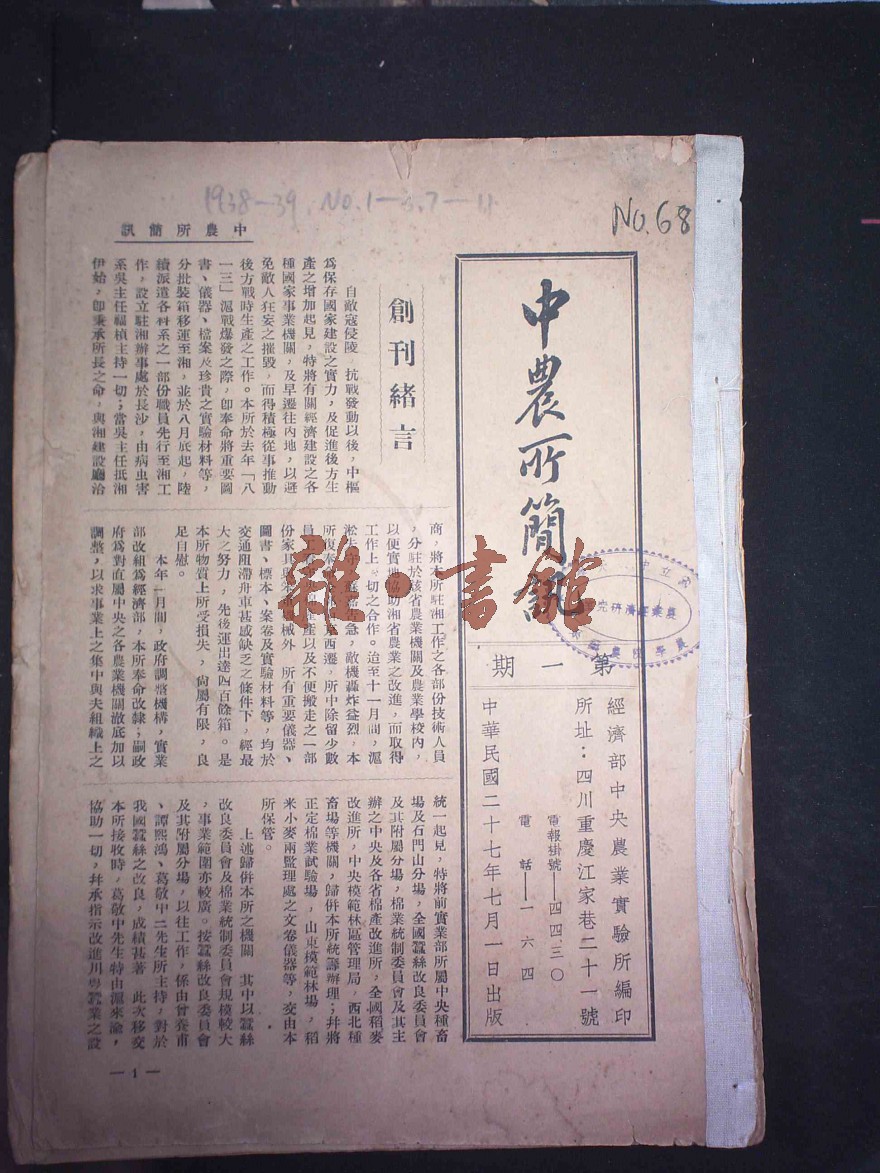 1938—39, No.1—
No.68
中農所簡訊
第一期
經濟部中央農業實驗所編印
所址：四川重慶江家巷二十一號
電報掛號——四四三〇
電話——一六四
中華民國二十七年七月一日出版
中農所簡訊
創刊緒言
自敵寇侵陵，抗戰發動以後，中樞
爲保存國家建設之實力，及促進後方生
產之增加起見，特將有關經濟建設之各
種國家事業機關，及早遷往內地，以避
免敵人狂妄之摧毀，而得積極從事推動
後方戰時生產之工作。本所於去年「八
一三」滬戰爆發之際，卽奉命將重要圖
書、儀器、檔案及珍貴之實驗材料等，
分批裝箱移運至湘，並於八月底起，陸
續派遣各科系之一部份職員先行至湘工
作，設立駐湘辦事處於長沙，由病虫害
系吳主任福楨主持一切；當吳主任抵湘
伊始，卽秉承所長之命，與湘建設廳洽
商，將本所駐湘工作之各部份技術人員
，分駐於該省農業機關及農業學校內，
以便實地協助湘省農業之改進，而取得
工作上一切之合作。迨至十一月間，滬
淞失 告急，敵機轟炸益烈，本
所復奉 西遷，所中除留少數
員工 產以及不便搬走之一部
份家具與 械外，所有重要儀器、
圖書、標本、案卷及實驗材料等，均於
交通阻滯舟車甚感缺乏之條件下，經最
大之努力，先後運出達四百餘箱。是
本所物質上所受損失，尙屬有限，良
足自慰。
本年一月間，政府調整機構，實業
部改組爲經濟部，本所奉命改隸；嗣政
府爲對直屬中央之各農業機關澈底加以
調整，以求事業上之集中與夫組織上之
統一起見，特將前實業部所屬中央種畜
場及石門山分場，全國蠶絲改良委員會
及其附屬分場，棉業統制委員會及其主
辦之中央及各省棉產改進所，全國稻麥
改進所，中央模範林區管理局，西北種
畜場等機關，歸併本所統籌辦理；幷將
正定棉業試驗場，山東模範林場，稻
米小麥兩監理處之文卷儀器等，交由本
所保管。
上述歸併本所之機關，其中以蠶絲
改良委員會及棉業統制委員會規模較大
，事業範圍亦較廣。按蠶絲改良委員會
及其附屬分場，以往工作，係由曾養甫
、譚熙鴻、葛敬中二先生所主持，對於
我國蠶絲之改良，成績甚著，此次移交
本所接收時，葛敬中先生特由滬來渝，
協助一切，幷承指示改進川粵蠶業之設
— 1 —
農業經濟研究
雜·書館